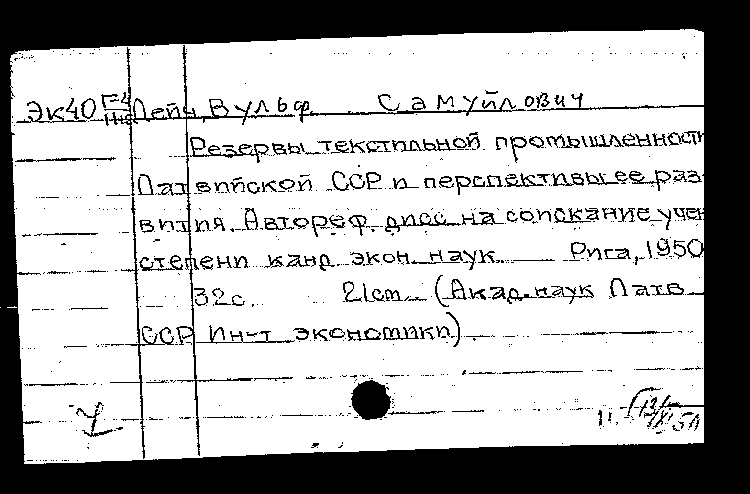 Эк40 Г-4 Лейч, Вульф Самуйлович
Резервы текстильной промышленности
Латвийской ССР и перспективы ее раз-
вития. Автореф. дисс на соискание учен
степени канд экон. наук Рига, 1950
32с. 21cm. (Акад. наук Латв
ССР Ин-т экономики)